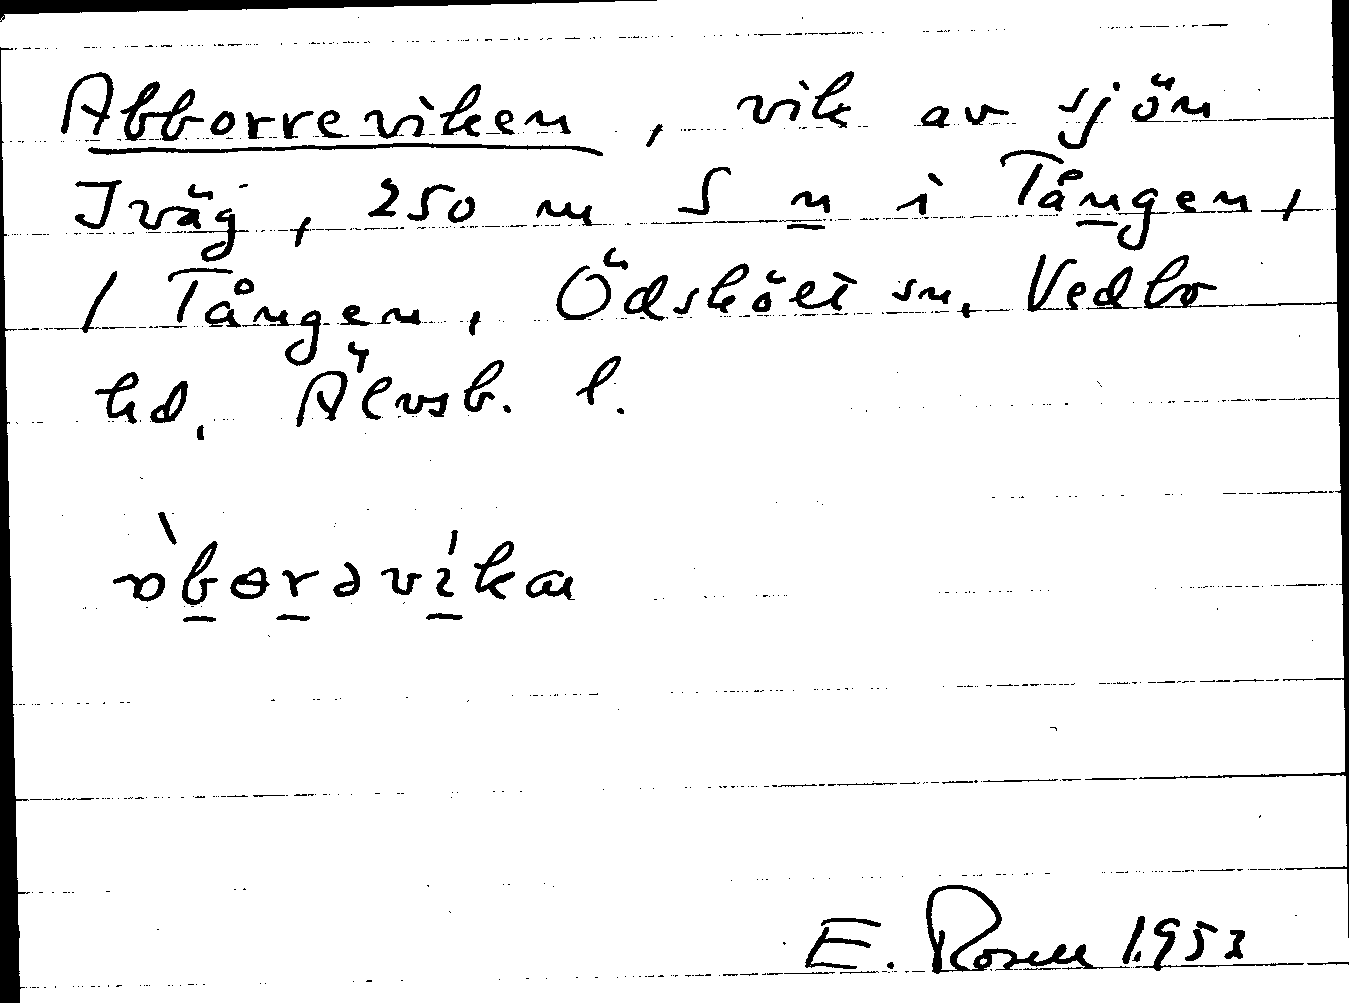 Abborreviken, vik av sjön
Iväg, 250 m S n i Tången,
/ Tången, Ödskölt sn, Vedbo
hd, Älvsb. l.
E. Rosell 1953